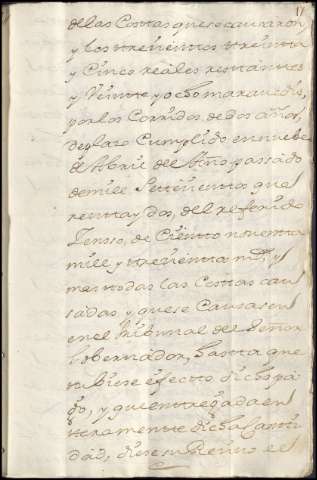 de las Costas que se causaron
y los trecientos treinta
y Cinco reales restantes
y Veinte y ocho maravedis,
por los Corridos de dos años,
de plazo Cumplido en nuebe
de Abril del Año passado
de mill Settecientos qua
renta y dos, del referido
Zensso, de Ciento noventa
mill y trecientos mrs, y
mas todas las Costtas cau
sadas y que se Causasen
en el tribunal del Señor
Gobernador, hasta que
tubiese efecto dicho pa
go, y que entregada en
teramente dicha Canti
dad, diese en Reciuo el